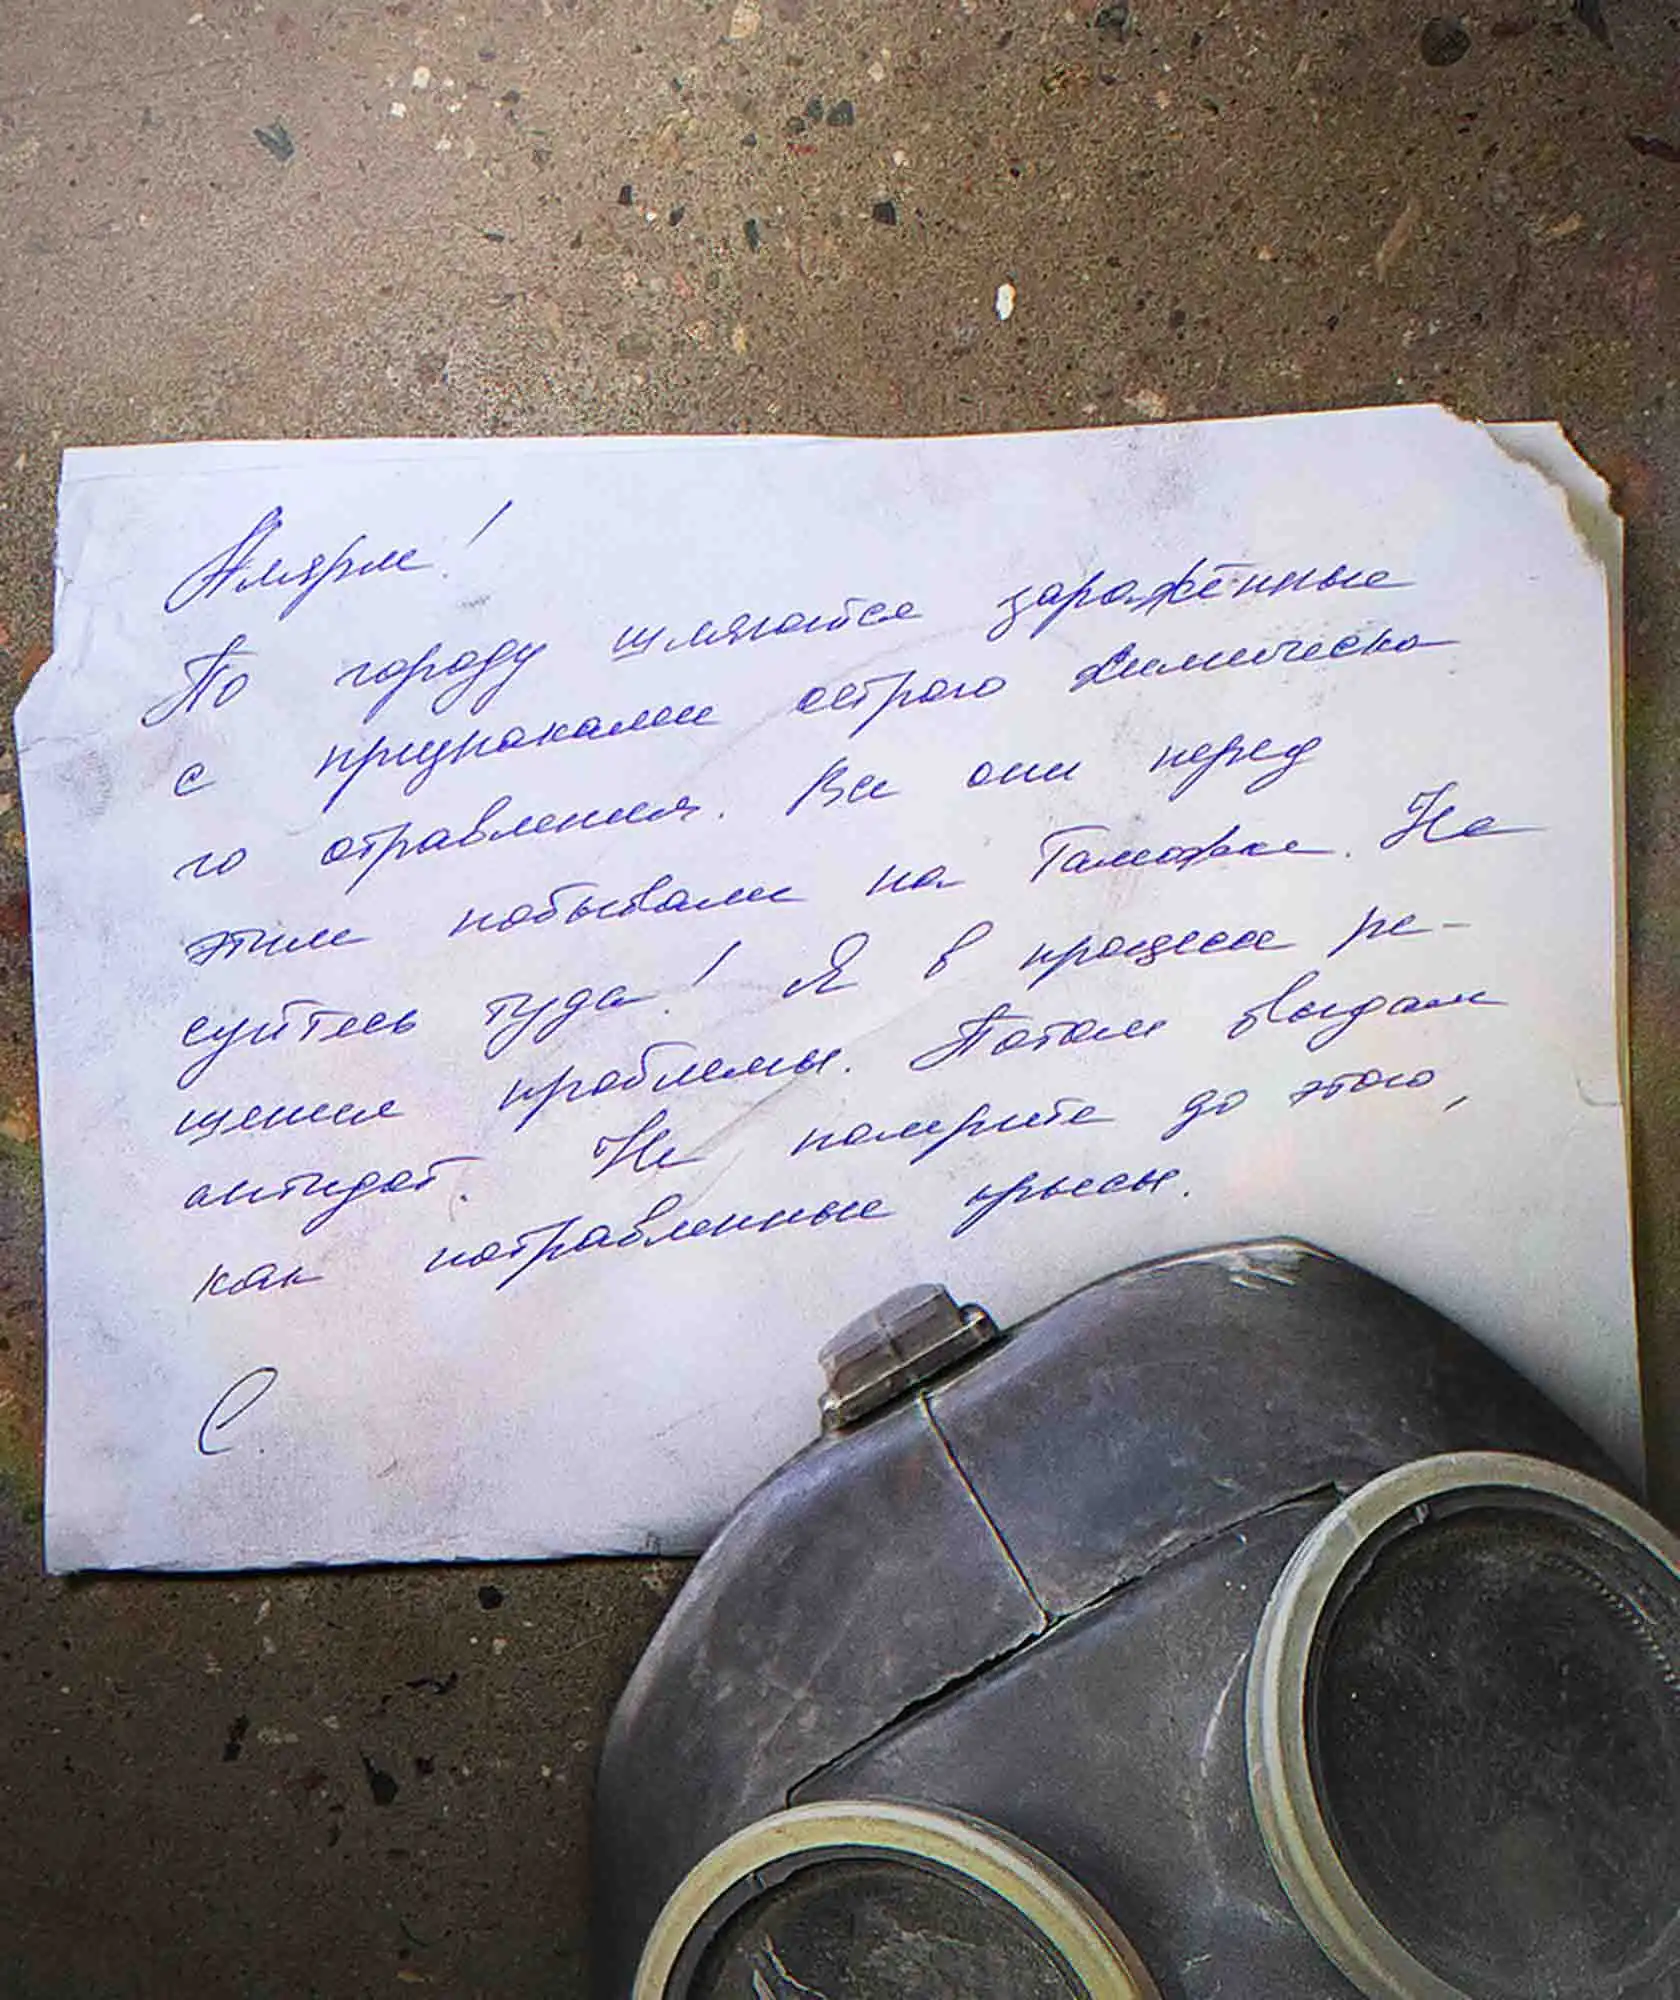 Алярм!
По городу шляются заражённые
с признаками острого химическо
го отравления. Все они перед
этим побывали на Гамофке. Не
суйтесь туда! Я в процессе ре-
шения проблемы. Потом выдам
антидот. Не помрите до этого,
как потравленные крысы.
С.